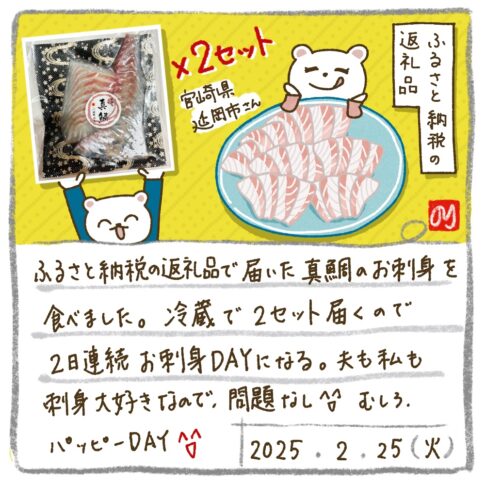 ふるさと納税の
返礼品
×2セット
宮崎県
延岡市さん
真鯛
ふるさと納税の返礼品で届いた真鯛のお刺身を
食べました。冷蔵で2セット届くので
2日連続お刺身DAYになる。夫も私も
刺身大好きなので、問題なし^^ むしろ、
ハッピーDAY
2025.2.25(火)